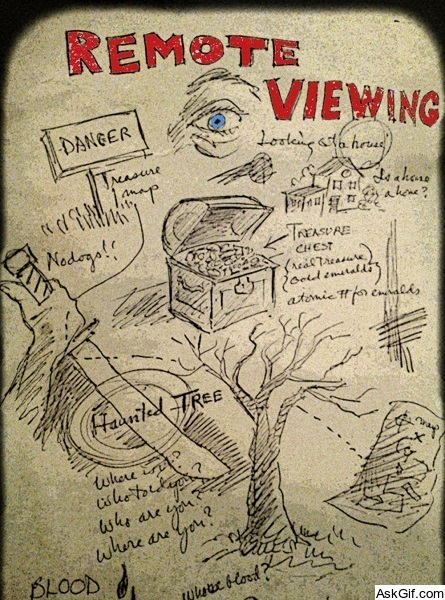 REMOTE
VIEWING
DANGER
Looking at a house
Is a house
a home?
Treasure
map
No dogs!!
TREASURE
CHEST
(real treasure)
(gold emeralds)
atomic # for emeralds
Haunted TREE
map
Where is it?
Who told you?
Who are you?
Where are you?
BLOOD
Whose blood?
AskGif.com